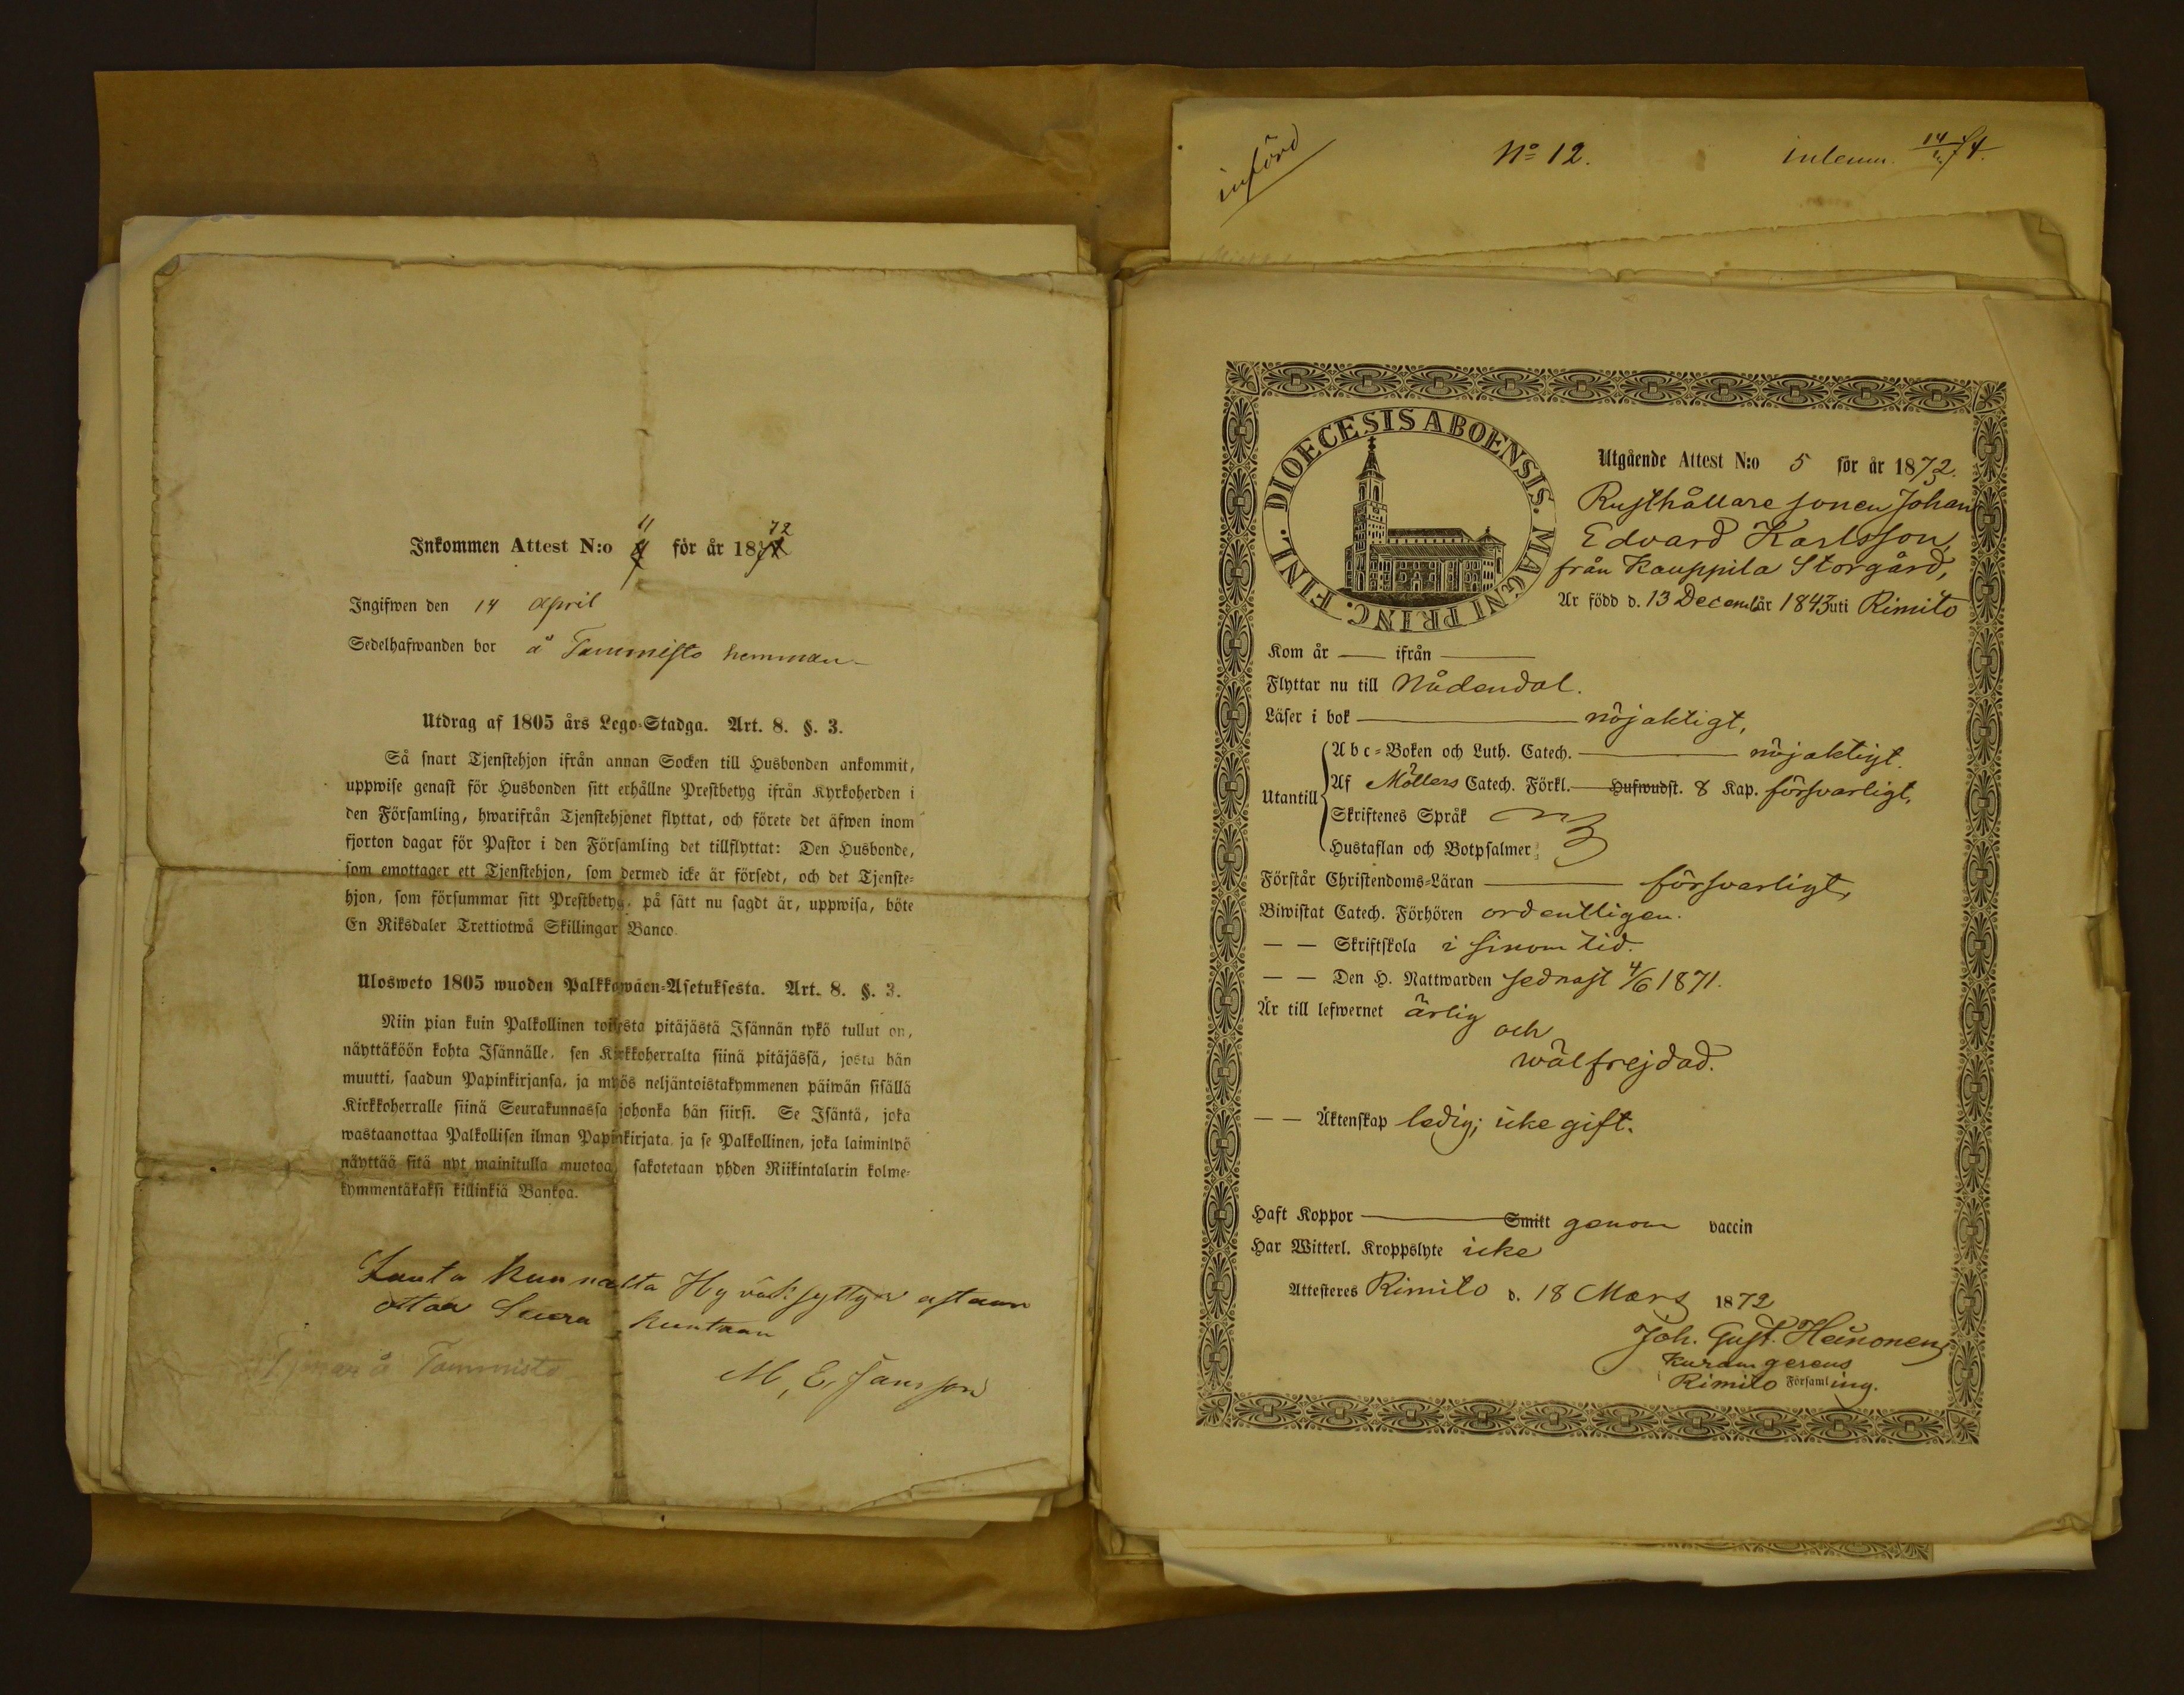 Inkommen Attest N:o 11 för år 1872
Ingifwen den 14 April
Sedelhafwanden bor å Tammisto hemman
Utdrag af 1805 års Lego-Stadga. Art. 8. §. 3.
Så snart Tjenstehjon ifrån annan Socken till Husbonden ankommit,
uppwise genast för Husbonden sitt erhållne Prestbetyg ifrån Kyrkoherden i
den Församling, hwarifrån Tjenstehjonet flyttat, och förete det äfwen inom
fjorton dagar för Pastor i den Församling det tillflyttat: Den Husbonde,
som emottager ett Tjenstehjon, som dermed icke är försedt, och det Tjenste-
hjon, som försummar sitt Prestbetyg, på sätt nu sagdt är, uppwisa, böte
En Riksdaler Trettiotwå Skillingar Banco.
Ulosweto 1805 wuoden Palkkawäen-Asetuksesta. Art. 8. §. 3.
Niin pian kuin Palkollinen toisesta pitäjästä Isännän tykö tullut on,
näyttäköön kohta Isännälle, sen Kirkkoherralta siinä pitäjässä, josta hän
muutti, saadun Papinkirjansa, ja myös neljäntoistakymmenen päiwän sisällä
Kirkkoherralle siinä Seurakunnassa johonka hän siirsi. Se Isäntä, joka
wastaanottaa Palkollisen ilman Papinkirjata, ja se Palkollinen, joka laiminlyö
näyttää sitä nyt mainitulla muotoa, sakotetaan yhden Riikintalarin kolme-
kymmentäkaksi killinkiä Bankoa.
kunnalta Hyväksyttyn
ottaa Seura kuntaan
å Tammisto
M. E. Jansson
införd
No 12.
inlemn. 14/4 74.
DIOECESIS ABOENSIS. MAGNI PRINC. FINL.
Utgående Attest N:o 5 för år 1872.
Rusthållare sonen Johan
Edvard Karlsson,
från Kauppila Storgård,
Är född d. 13 Decemb år 1843 uti Rimito
Kom år — ifrån —
Flyttar nu till Nådendal.
Läser i bok — nöjaktigt,
Abc-Boken och Luth. Catech. — nöjaktigt.
Utantill
Af Möllers Catech. Förkl. — Hufwudst. 8 Kap. försvarligt,
Skriftenes Språk
Hustaflan och Botpsalmer
Förstår Christendoms-Läran — försvarligt,
Biwistat Catech. Förhören ordentligen.
— — Skriftskola i sinom tid.
— — Den H. Nattwarden sednast 4/6 1871.
Är till lefwernet ärlig
och
wälfrejdad.
— — Äktenskap ledig; icke gift.
Haft Koppor — Smitt genom vaccin
Har Witterl. Kroppslyte icke
Attesteres Rimito d. 18 Mars 1872
Joh. Gust. Heinonen,
Kuram gerens
i Rimito Församling.